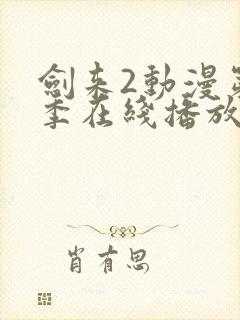 劍来2動漫第
季在綫播放
肖有思